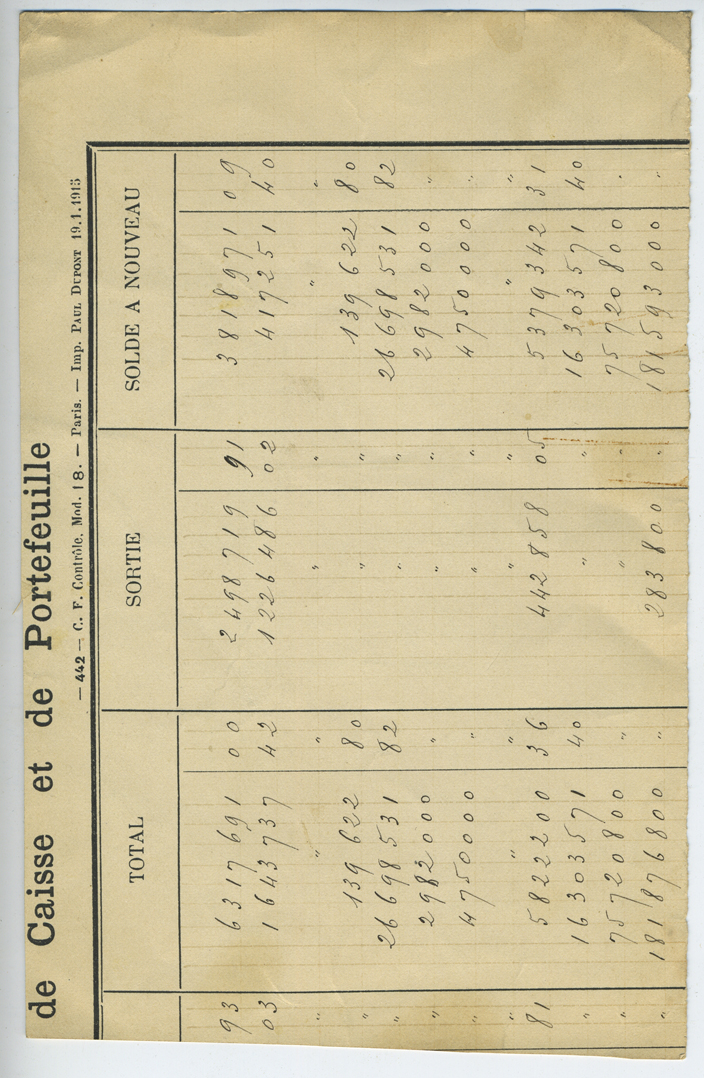 de Caisse et de Portefeuille
— 442 — C. F. Contrôle. Mod. 18. — Paris. — Imp. PAUL DUPONT 19.1.1915
TOTAL SORTIE SOLDE A NOUVEAU
93 6317691 00 2498719 91 3818971 09
03 1643737 42 1226486 02 417251 40
" " " " " " "
" 139622 80 " " 139622 80
" 26698531 82 " " 26698531 82
" 2982000 " " " 2982000 "
" 4750000 " " " 4750000 "
" " " " " " "
81 5822200 36 442858 05 5379342 31
" 16303571 40 " " 16303571 40
" 75720800 " " " 75720800 "
" 181876800 " 283800 " 181593000 "